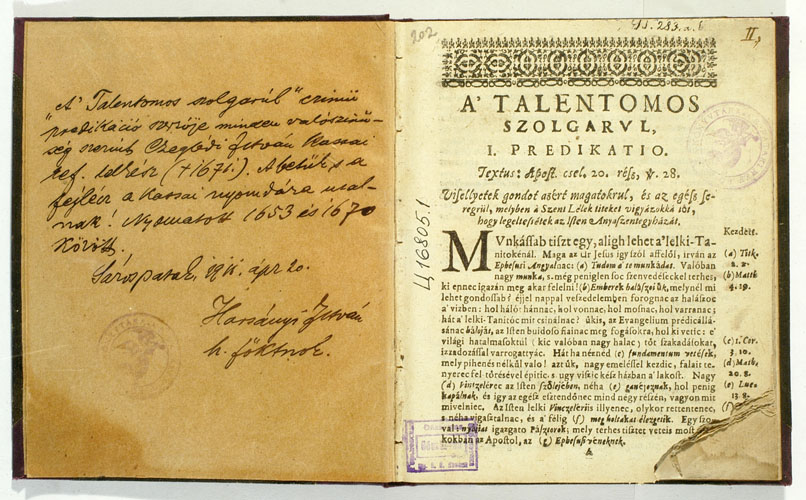 "A' Talentomos szolgarúl" czimü
predikáció szerzője minden valószinü-
ség szerint Czeglédi István kassai
ref. lelkész († 1671.). A betük s a
fejléc a kassai nyomdára utal-
nak! Nyomatott 1653 és 1670
között.
Sárospatak, ápr 20.
Harsányi István
h. főktnok.
202
II,
A' TALENTOMOS
SZOLGARVL,
I. PREDIKATIO.
Textus: Apost. csel. 20. rész, ℣. 28.
Visellyetek gondot azért magatokrul, és az egész se-
regrül, melyben à Szent Lélek titeket vigyázokká töt,
hogy legeltessétek az Isten Anyaszentegyházát.
MVnkássab tiszt egy, aligh lehet a' lelki-Ta-
nitokénál. Maga az Ur Jesus igy szól affelöl, irván az
Ephesusi Angyalnac: (a) Tudom a te munkádat. Valóban
nagy munka, s még peniglen soc szenvedéseckel terhes,
ki ennec igazán meg akar felelni! (b) Emberek halászszi ük, melynél mi
lehet gondossab? éjjel nappal veszedelemben forognac az halászoc
a' vizben: hol háló: hánnac, hol vonnac, hol mosnac, hol varranac;
hát a' lelki-Tanitóc mit csinálnac? ükis, az Evangelium prédicállá-
sánac hálóját, az Isten buidosó fiainac meg fogásokra, hol ki vetic: e'
világi hatalmasoktúl (kic valóban nagy halac) tőt szakadásokat,
izzadozással varrogattyác. Hát ha néznéd (c) fundamentum vetések,
mely pihenés nélkül való! azt ük, nagy emeléssel kezdic, falait te-
nyerec fel-törésével épitic, s ugy viszic kész házban a' lakost. Nagy
(d) Vinczelérec az Isten szőlejében, néha (e) ganéjoznak, hol penig
kapálnak, és igy az egész esztendőnec mind négy részén, vagyon mit
mivelniec. Az Isten lelki Vinczeléris illyenec, olykor rettentenec,
s néha vigasztalnac, és a' félig (f) meg holtakat élezgetik. Egy szo-
val: nyájas igazgato Pásztorok; mely terhes tisztet veteis most
kokban az Apostol, az (g) Ephesusi véneknek.
A
Kezdett.
(a) Tit.
2. 2.
(b) Matth
4. 19.
(c) 1. Cor.
3. 10.
(d) Matth.
20. 8.
(e) Luc.
13. 8.
(f)
Ц16805.1